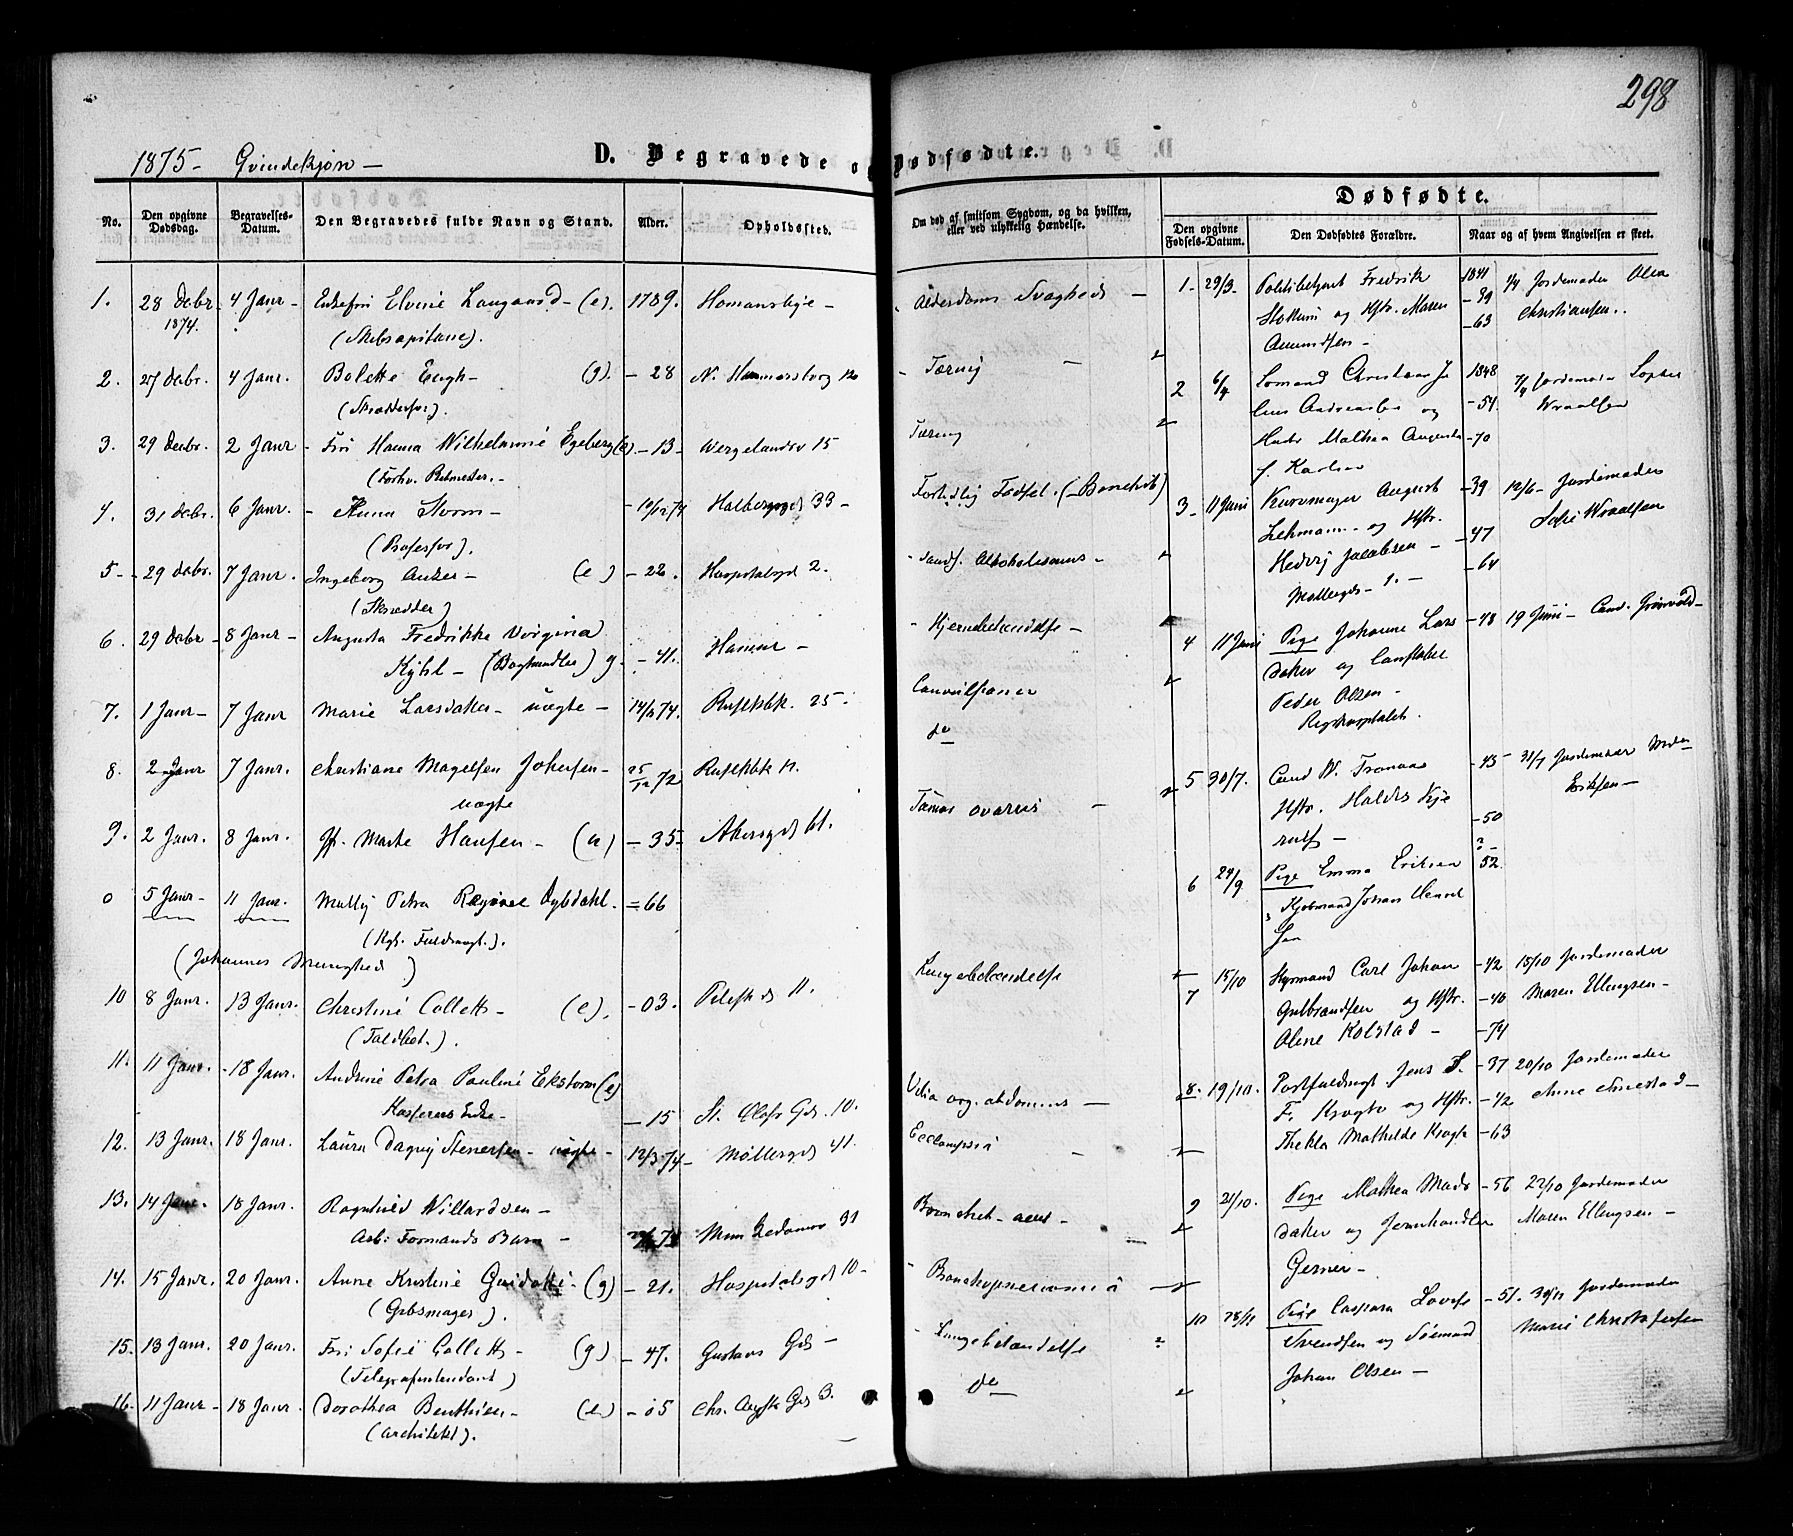 298
1875 - Qvindekjøn -
D. Begravede og Dødfødte.
No.
Den opgivne Dødsdag.
Begravelses-Datum.
Den Begravedes fulde Navn og Stand.
Alder.
Opholdssted.
Om død af smitsom Sygdom, og da hvilken, eller ved ulykkelig Hændelse.
Dødfødte.
Den opgivne Fødsels-Datum.
Den Dødfødtes Forældre.
Naar og af hvem Angivelsen er skeet.
1. 28 Decbr 1874. 4 Janr - Enkefru Elvine Langaard - (e). 1789. Homansbye -
(Skibscapitaine).
Alderdoms Svaghed -
2. 27 Decbr. 4 Janr. Bolette Engh - (g). - 28 N. Hammersborg
(Skrædderfru).
Tæring
3. 29 Decbr. 2 Janr - Frk Hanna Wilhelmine Egeberg (e). - 13 - Wergelandsv 15
(Forhv. Ritmester. -
Tæring
4. 31 Decbr. 6 Janr. - Anna Storm - Holbergsgd 33 -
(Professor).
Fortidlig Fødsel.
5 - - 29 Decbr. 7 Janr. Ingeborg Anker - (e) - 22. Hospitalsgd 2.
(Skrædder)
Alkoholismus -
6. 29 Decbr - 8 Janr - Augusta Fredrikke Virginia
Kyhl - (Boghandler) g. - 41. Hamar -
- Hjernebetændelse -
7. 1 Janr - 7 Janr Marie Larsdatter - uægte - 14/ 74. 25.
Convulsioner
8. 2 Janr 7 Janr. Christiane Magelsen Johnsen - 25/12 72
uægte
do
9. 2 Janr. 8 Janr. Marthe Hansen - (u) - 35 - Akersgd 61.
Tumor ovarii -
0 5 Janr - 11 Janr. Mally Petra Dybdahl. = 66
(Kgl. Fuldmægt.).
(Johannes Menighed)
10 8 Janr. 13 Janr. Christine Collett - (e). - 03. Pilestrd 11.
Lungebetændelse
11. 11 Janr. - 18 Janr. Andrine Petra Pauline Ekstorm (e)
Kasserers Enke - - 15 St. Olafs Gd. 10.
Vitia org. abdominis -
12. 13 Janr. 18 Janr. Laura Dagny Stenersen - uægte - 12/3 74 - Møllergd 41.
Eclampsia
13. 14 Janr. 18 Janr. Ragnhild Willardsen -
Arb: Formands Barn - 31
Bronchit - acut -
14. 15 Janr. 20 Janr. Anne Kristine Guidotti - (g) - 21. Hospitalsgd 10 -
(Gibsmager).
- Bronchopneumonia
15. 13 Janr. 20 Janr. Fru Sofie Collett - (g) - 47. Gustavs Gd -
(Telegrafintendant)
- Lungebetændelse
16. 11 Janr - 18 Janr. Dorothea Benthien - (e) - 05 Chr. Augsts Gd 3.
(Architekt).
do
1 - 29/3. Politibetjent Fredrik - 1841 1/4 Jordemoder Olea
og Hstr. Maren - 39 Christiansen..
Amundsen - - 63
2 6/4 Lomand Christian Ju 1848 7/4 Jordemoder Sophie
lius Andreassen og - 54 Wraalsen
Hustr Mathea Augusta - 70
f. Karlsen
3 - 11 Juni Kurvmager August - 39 12/6 - Jordemoder
Lehmann - og Hstr. Sofie Wraalsen
Hedvig Jacobsen - - 47
Møllergd - 1. - - 64
4 11 Juni Pige Johanne Lars - 48 19 Juni - Cand. Grønvold -
datter og Constabel
Peder Olsen -
Rigshospitalet.
5 30/7. Cand W. Tronaas - 43 - 31/7 Jordemoder
Hstr. Haldis Kje Eriksen -
rulf - - 50
6 24/9 Pige Emma Eriksen 52.
Kjøbmand Johan
sen
7 15/10 Styrmand Carl Johan - 42 15/10 Jordemoder
Gulbrandsen og Hstr. - 40 Maren Ellingsen -
Oline Kolstad - - 74
8. 19/10. Postfuldmægt Jens S. - 37 20/10 Jordemoder
F. Krogh og Hstr. - 42 Anne Anestad -
Thekla Mathilde Krogh - 63
9 21/10. Pige Mathea Mads - 56 22/10 Jordemoder
datter og Jernhandler Maren Ellingsen -
Gerner -
10 28/11 Pige Caspara Lovise - 51. 30/11 Jordemoder
Svendsen og Sømand Marie Christofersen
Johan Olsen -